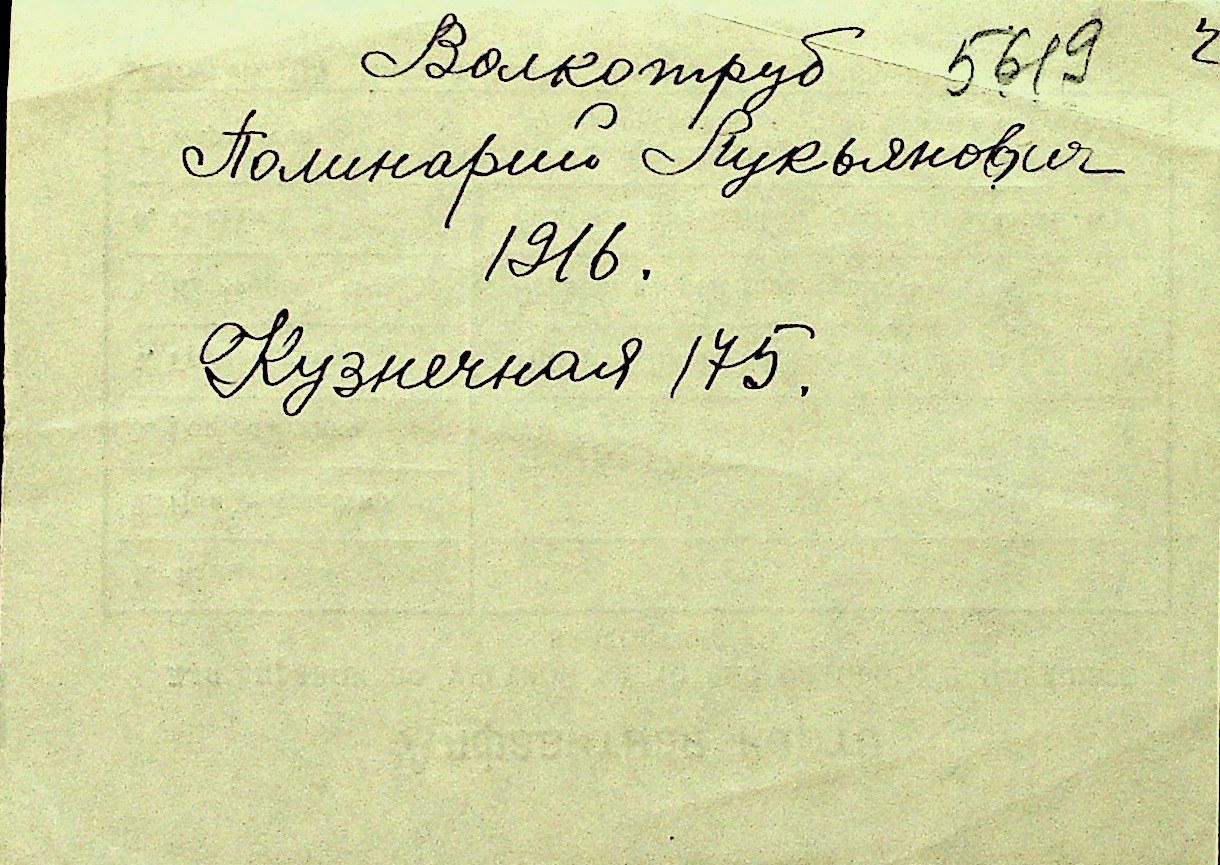 Волкотруб 5619
Полинарий Лукьянович
1916.
Кузнечная 175.